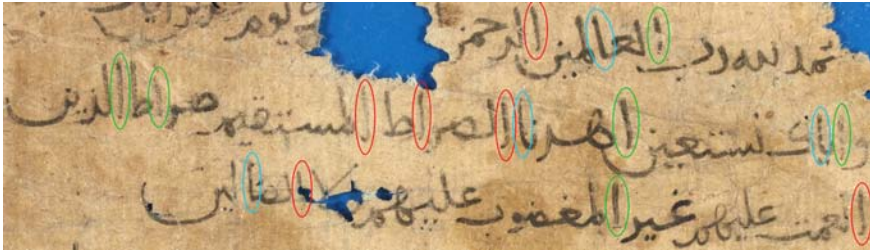 حمد لله رب العالمين الرحمن يوم
واياك نستعين اهدنا الصراط المستقيم صراط الذين
انعمت عليهم غير المغضوب عليهم ولا الضالين